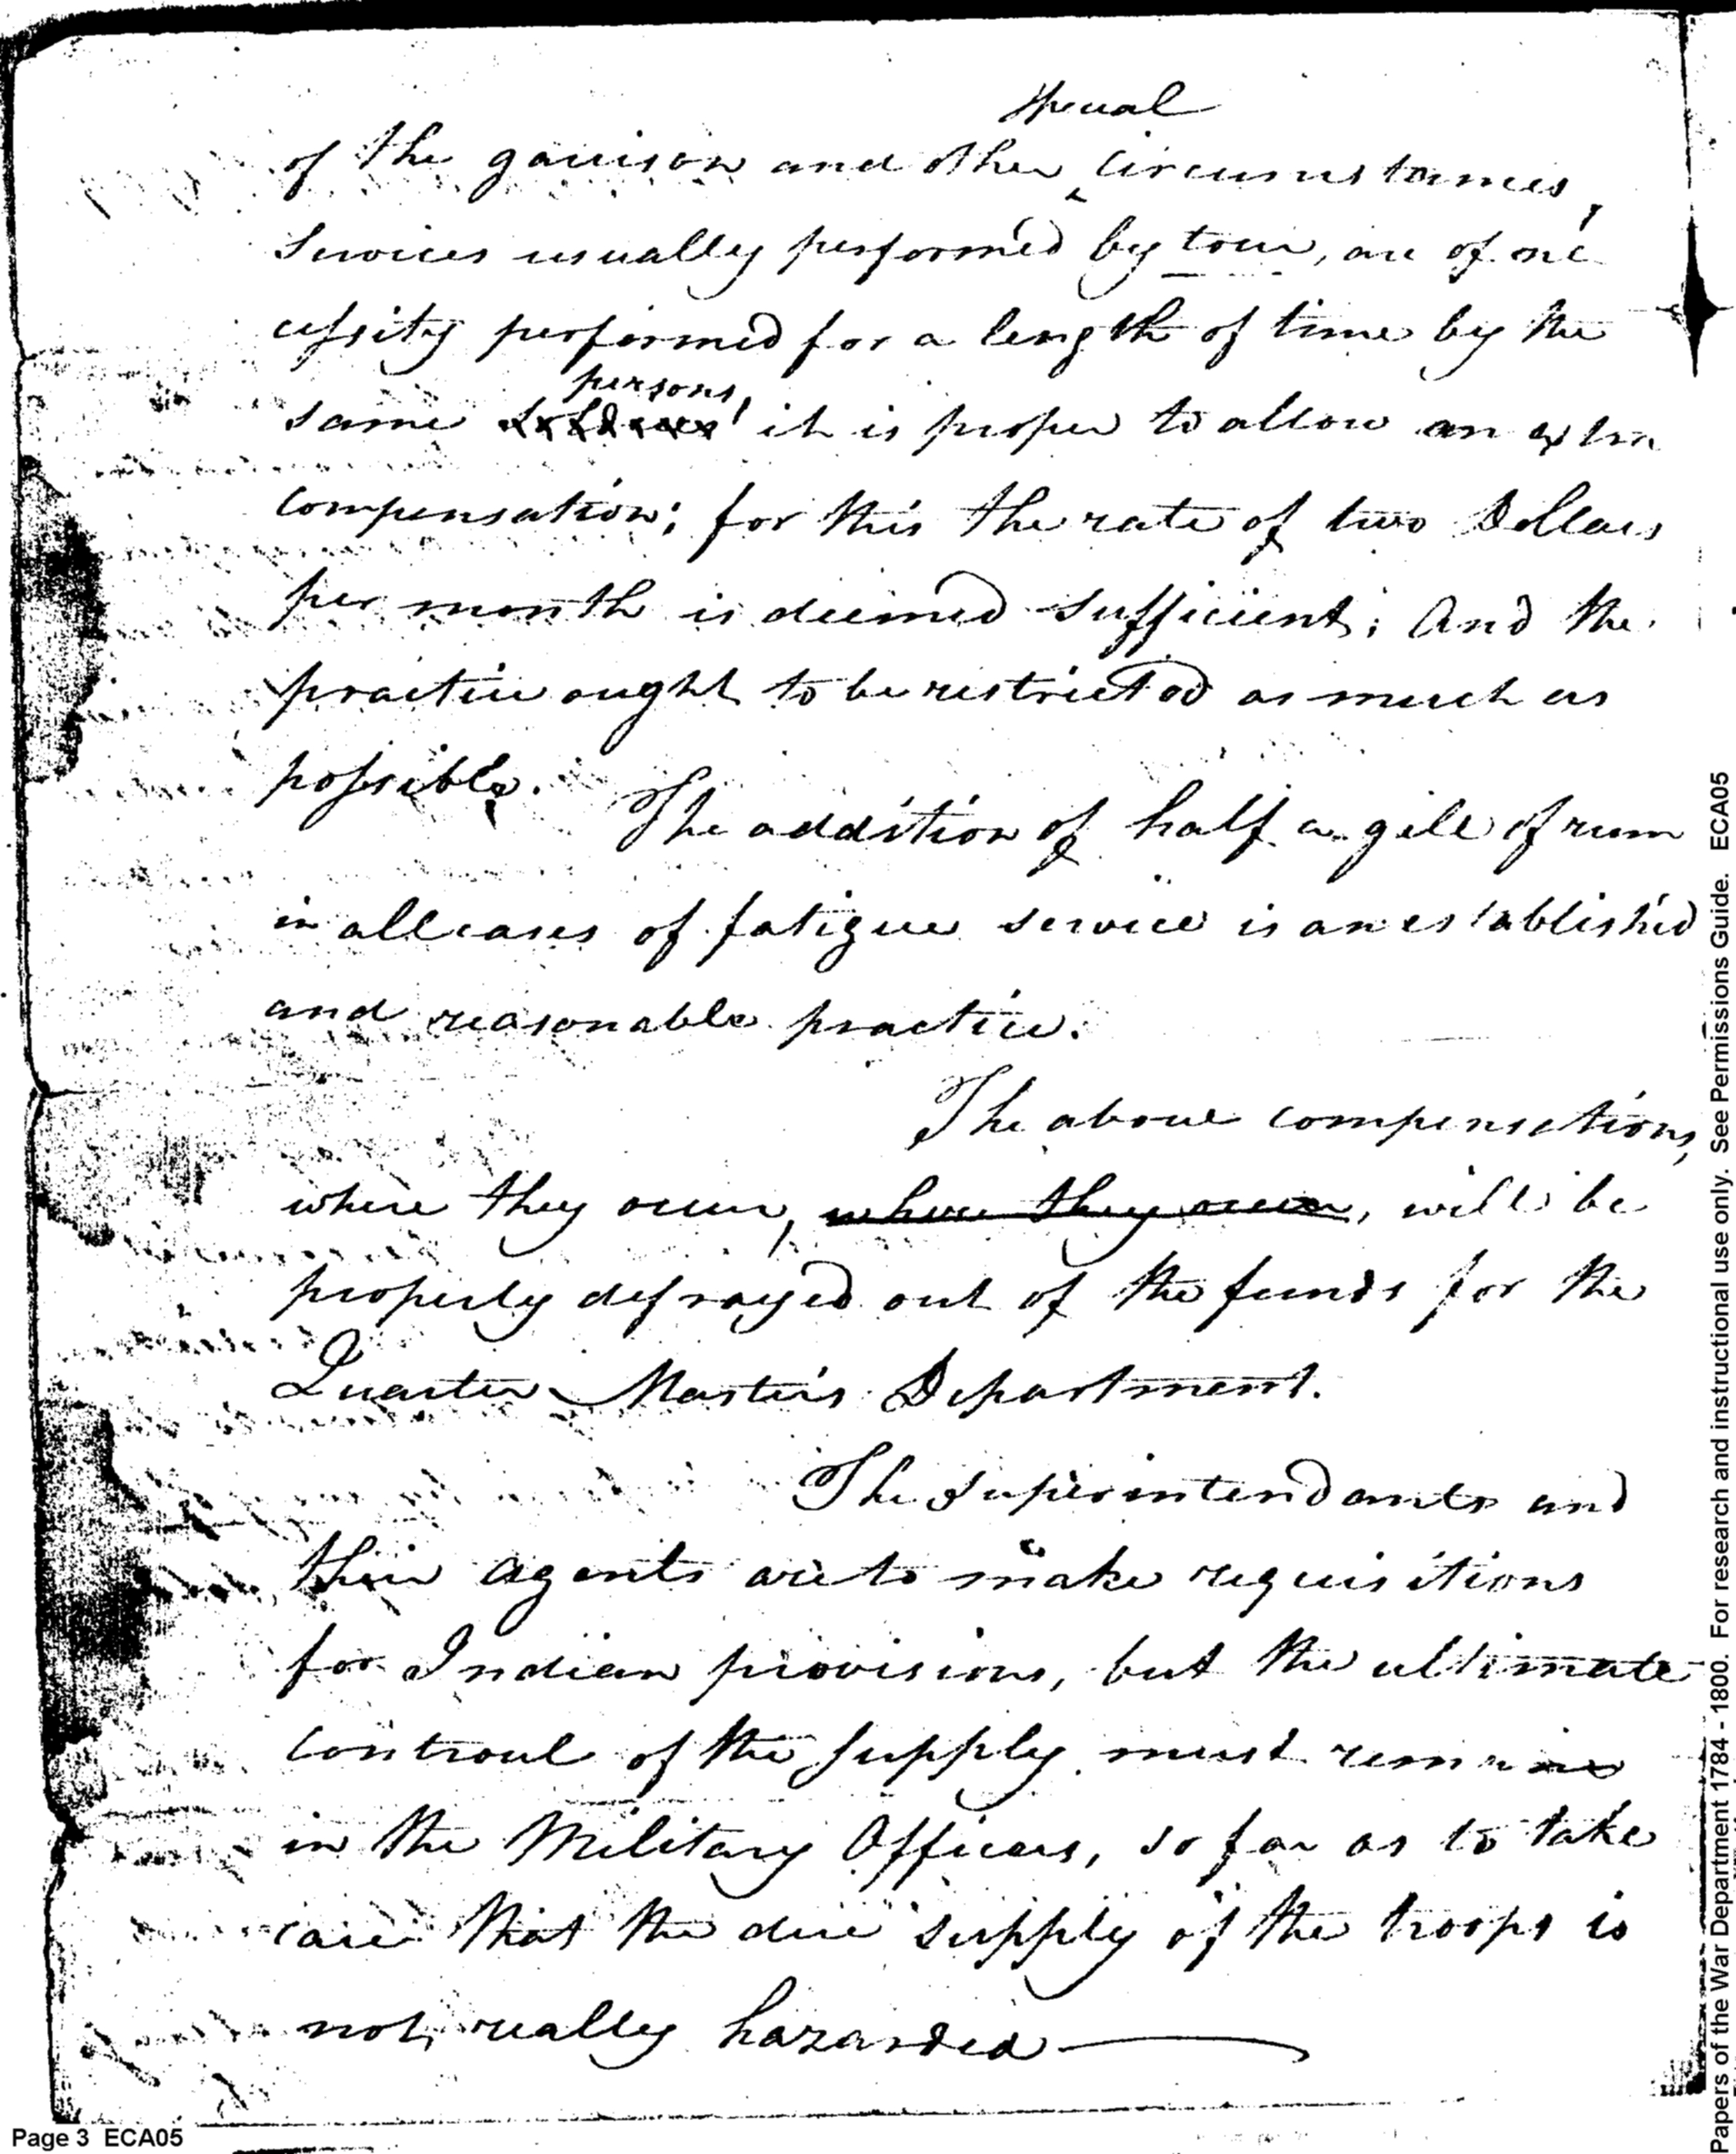 special
of the garrison and other ‸ circumstances,
services usually performed by tour, are of ne
cessity performed for a length of time by the
persons,
same soldiers it is proper to allow an extra
compensation; for this the rate of two Dollars
per month is deemed sufficient; And the
practice ought to be restricted as much as
possible.
The addition of half a gill of rum
in all cases of fatigue service is an establishéd
and reasonable practice.
The above compensations,
where they occur, where they occur, will be
properly defrayed out of the funds for the
Quarter Master's Department.
The Superintendants and
their agents are to make requisitions
for Indian provisions, but the ultimate
controul of the supply must remain
in the Military Officers, so far as to take
care that the due supply of the troops is
not really hazarded
Page 3 ECA05
Papers of the War Department 1784 - 1800. For research and instructional use only. See Permissions Guide. ECA05